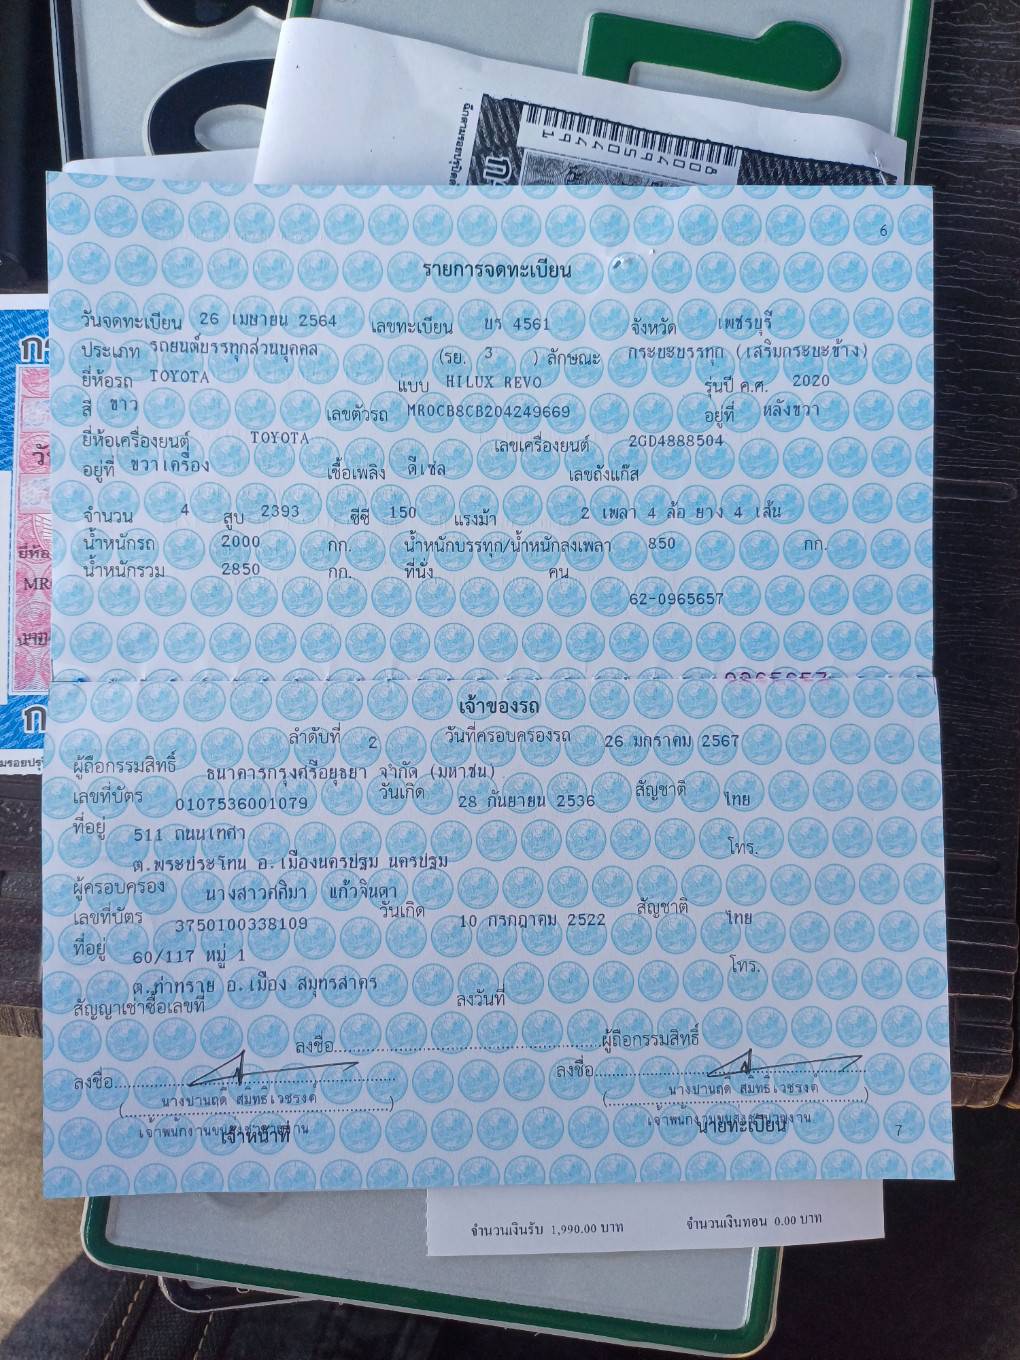 6
รายการจดทะเบียน
วันจดทะเบียน 26 เมษายน 2564 เลขทะเบียน บร 4561 จังหวัด เพชรบุรี
ประเภท รถยนต์บรรทุกส่วนบุคคล (รย. 3 ) ลักษณะ กระบะบรรทุก (เสริมกระบะข้าง)
ยี่ห้อรถ TOYOTA แบบ HILUX REVO รุ่นปี ค.ศ. 2020
สี ขาว เลขตัวรถ MR0CB8CB204249669 อยู่ที่ หลังขวา
ยี่ห้อเครื่องยนต์ TOYOTA เลขเครื่องยนต์ 2GD4888504
อยู่ที่ ขวาเครื่อง เชื้อเพลิง ดีเซล เลขถังแก๊ส
จำนวน 4 สูบ 2393 ซีซี 150 แรงม้า 2 เพลา 4 ล้อ ยาง 4 เส้น
น้ำหนักรถ 2000 กก. น้ำหนักบรรทุก/น้ำหนักลงเพลา 850 กก.
น้ำหนักรวม 2850 กก. ที่นั่ง คน
62-0965657
0965657
เจ้าของรถ
ลำดับที่ 2 วันที่ครอบครองรถ 26 มกราคม 2567
ผู้ถือกรรมสิทธิ์ ธนาคารกรุงศรีอยุธยา จำกัด (มหาชน)
เลขที่บัตร 0107536001079 วันเกิด 28 กันยายน 2536 สัญชาติ ไทย
ที่อยู่ 511 ถนนเทศา โทร.
ต.พระประโทน อ.เมืองนครปฐม นครปฐม
ผู้ครอบครอง นางสาวศศิมา แก้วจินดา
เลขที่บัตร 3750100338109 วันเกิด 10 กรกฎาคม 2522 สัญชาติ ไทย
ที่อยู่ 60/117 หมู่ 1 โทร.
ต.ท่าทราย อ.เมือง สมุทรสาคร
สัญญาเช่าซื้อเลขที่ ลงวันที่
ลงชื่อ ผู้ถือกรรมสิทธิ์
ลงชื่อ ลงชื่อ
นางปานฤดี สมิทธิเวชรงค์ นางปานฤดี สมิทธิเวชรงค์
เจ้าหน้าที่ นายทะเบียน
7
จำนวนเงินรับ 1,990.00 บาท จำนวนเงินทอน 0.00 บาท